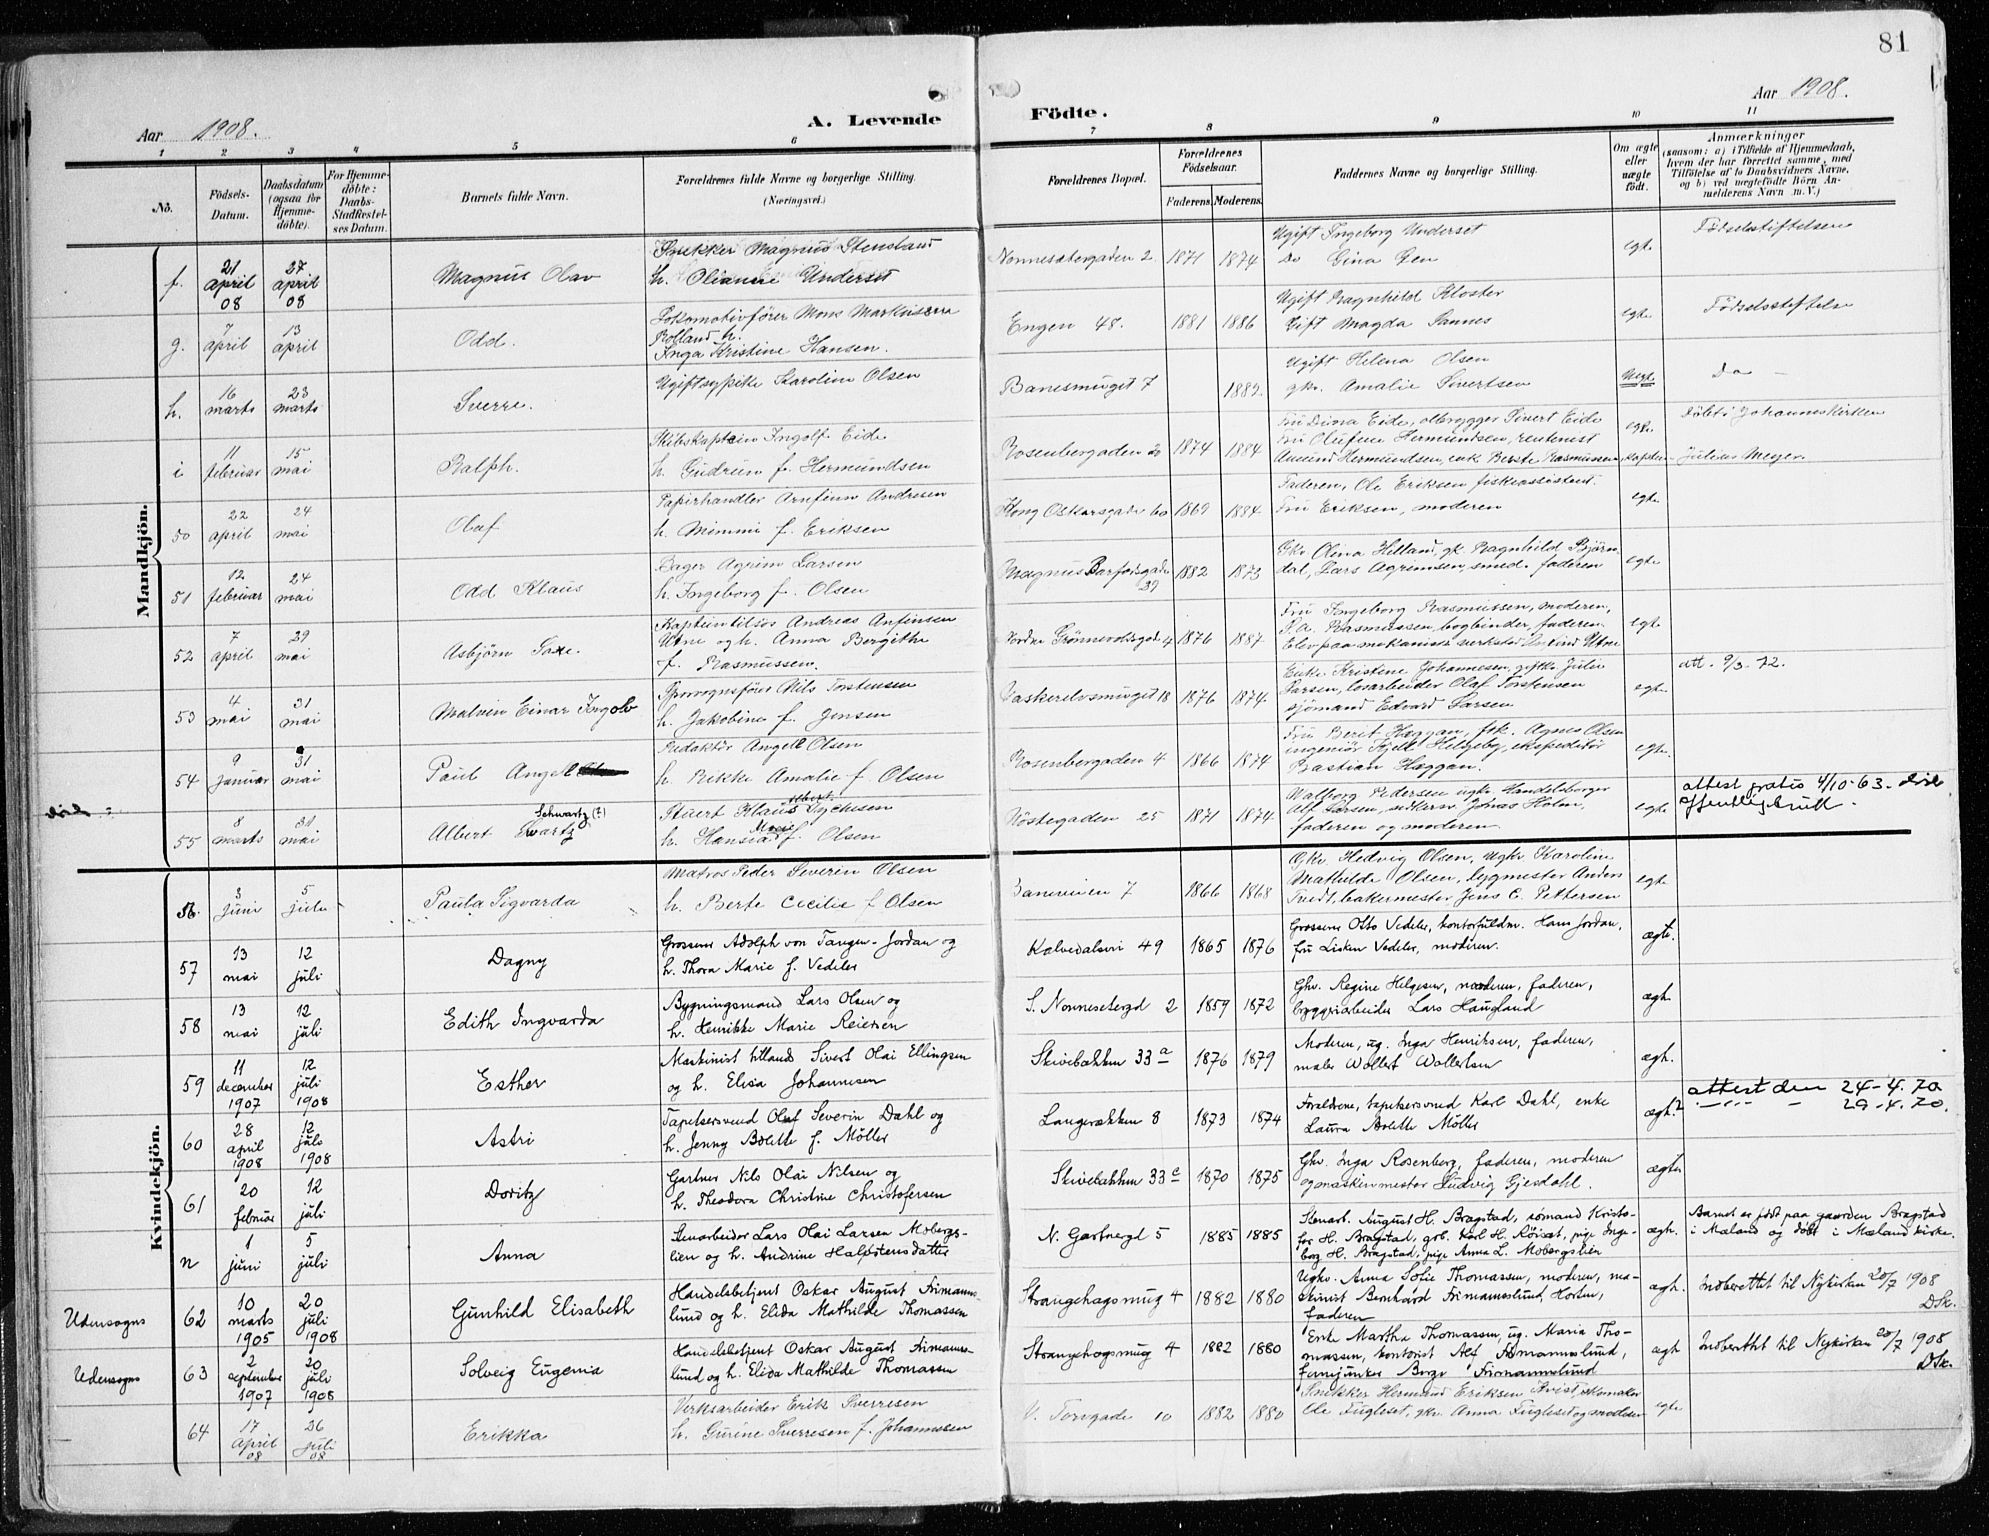 81
Aar 1908.
A. Levende
Födte.
Aar 1908.
1 2 3 4 5 6 7 8 9 10 11
No.
Födsels-
Datum.
Daabsdatum
(ogsaa for
Hjemme-
döbte).
For Hjemme-
döbte:
Daabs-
Stadfæstel-
ses Datum.
Barnets fulde Navn.
Forældrenes fulde Navne og borgerlige Stilling.
(Næringsvei.)
Forældrenes Bopæl.
Forældrenes
Födselsaar.
Faderens. Moderens.
Faddernes Navne og borgerlige Stilling.
Om ægte
eller
uægte
født.
Anmærkninger
(saasom: a) i Tilfælde af Hjemmedaab,
hvem der har forrettet samme, med
Tilföielse af to Daabsvidners Navne,
og b) ved uægtefödte Börn An-
melderens Navn m. V.)
Mandkjön.
f. 21 april 08 27 april 08 Magnus Olav
Snekker Magnus Stensland
h. Oliane Underset
Nonnesætergaden 2 1871 1874
Ugift Ingeborg Underset
do Gina Gen
egte Fødselsstiftelsen
g. 7 april 13 april Odd.
Lokomotivfører Mons Markusen
Rolland h.
Inga Kristine Hansen.
Engen 48. 1881 1886
Ugift Ragnhild Kloster
Gift Magda Sannes
egte. Fødselsstiftelse
h. 16 marts 23 marts Sverre.
Ugift sypike Karoline Olsen
Banesmuget 7 1882.
Ugift Helena Olsen
gkv. Amalie Sivertsen
Uegt. Do —
i 11 februar 15 mai Ralph.
Skibskaptein Ingolf Eide
h. Gudrun f. Hermundsen
Rosenbergaden 20 1874 1884
Fru Dina Eide, ølbrygger Sivert Eide
Fru Olufine Hermundsen, rentenist
Amund Hermundsen, enk. Berte Rasmussen, kaptein
egte Døbt i Johanneskirken
Julius Meyer.
50 22 april 24 mai Olaf
Papirhandler Arnfinn Andresen
h. Mimmi f. Eriksen
Kong Oskarsgade 60 1869 1884
Faderen, Ole Eriksen fiskeassistent.
Fru Eriksen, moderen
egte.
51 12 februar 24 mai Odd Klaus
Bager Agrim Larsen
h. Ingeborg f. Olsen
Magnus Barfodsgade 39 1882 1873
Gkv Olina Hilland, gk. Ragnhild Bjørn-
dal, Lars Agrimsen, smed. faderen
egte
52 7 april 29 mai Asbjørn Saxe.
Kapteintilsøs Andreas Anfinsen
Utne og h. Anna Bergithe
f. Rasmussen.
Nordre Grønnevoldsgade 4 1876 1887
Fru Ingeborg Rasmussen, moderen,
R. a. Rasmussen, bogbinder, faderen
Elev paa mekaniske verksted Øivind Utne
egte
53 4 mai 31 mai Malvin Einar Ingolv
Sporvognsfører Nils Torstensen
h. Jakobine f. Jensen
Vaskerelvsmuget 18 1876 1874
Enke Kristine Johannesen, giftk. Julie
Larsen, løsarbeider Olaf Torstensen
sjømand Edvard Larsen
egte att. 9/3. 72.
54 9 januar 31 mai Paul Angell
Redaktør Angell Olsen
h. Rikke Amalie f. Olsen
Rosenbergaden 4 1866 1874
Fru Berit Hæggan, frk. Agnes Olsen
ingeniør Kjell Helgeby, ekspeditør
Bastian Hæggan.
egte
55 8 marts 31 mai Albert Swartz Schwartz (?)
Stuert Klaus Albert Dychesen
h. Hansia Marie f. Olsen
Nøstegaden 25 1871 1874
Valborg Pedersen ugk. Handelsborger
Alf Larsen, seilkerer Johas Holm,
faderen og moderen.
egte attest gratis 4/10-63.
Offentlig bruk.
Kvindekjön.
56. 3 juni 5 julu Paula Sigvarda
Matros Peder Severin Olsen
h. Berte Cecilie f. Olsen
Baneveien 7 1866 1868
Gkv. Hedvig Olsen, Ugkv Karoline
Mathilde Olsen, bygmester Anders
Tvedt, bakermester Jens C. Pettersen
egte
57 13 mai 12 juli Dagny
Grosserer Adolph von Tangen-Jordan og
h. Thora Marie f. Vedeler
Kalvedalsvei 49 1865 1876
Grosserer Otto Vedeler, kontorfuldm. Hans Jordan,
fru Lisken Vedeler, moderen.
ægte.
58 13 mai 12 juli Edith Ingvarda
Bygningsmand Lars Olsen og
h. Henrikke Marie Reiersen
S. Nonnesetergd 2 1859 1872
Ghv. Regine Helgesen, moderen, faderen,
byggeriarbeider Lars Haugland
ægt.
59 11 december 1907 12 juli 1908 Esther
Maskinist tillands Sivert Olai Ellingsen
og h. Elisa Johannesen
Skivebakken 33 a 1876 1879
Moderen, ug. Inga Henriksen, faderen,
maler Wollert Wollertsen
ægt.
60 28 april 1908 12 juli 1908 Astri
Tapetserersvend Olaf Severin Dahl og
h. Jenny Bolette f. Møller
Langerækken 8 1873 1874
Forældrene, tapetserersvend Karl Dahl, enke
Laura Bolette Møller
ægt. attest den 24-4.70
29-4.70.
61 20 februar 12 juli Doritz
Gartner Nils Olai Nilsen og
h. Theodora Christine Christofersen
Skivebakken 33 c 1870 1875
Ghv. Inga Rosenberg, faderen, moderen
og maskinmester Ludvig Gjesdahl.
ægte
n 1 juni 5 juli Anna
Stenarbeider Lars Olai Larsen Mobergs-
lien og h. Andrine Halfstensdatter
N. Gartnergd 5 1885 1885
Stenarb. August H. Bragstad, sømand Kristo-
fer H. Bragstad, grb. Karl H. Røisæt, pige Inge-
borg H. Bragstad, pige Anna L. Mobergslien
ægt. Barnet er født paa gaarden Bragstad
i Mæland og døbt i Mæland kirke.
Udensogns 62 10 marts 1905 20 juli 1908 Gunhild Elisabeth
Handelsbetjent Oskar August Firmanns-
lund og h. Elida Mathilde Thomassen
Strangehagsmug 4 1882 1880
Ugkv. Anna Sofie Thomassen, moderen, ma-
skinist Bernhard Firmanneslund Horten,
faderen
ægt. Indberettet til Nykirken 20/7 1908
DSk.
Udensogns 63 2 september 1907 20 juli 1908 Solveig Eugenia
Handelsbetjent Oskar August Firmanns-
lund og h. Elida Mathilde Thomassen
Strangehagsmug 4 1882 1880
Enke Martha Thomassen, ug. Maria Tho-
massen, kontorist Alf Firmanneslund,
fennjunker Borge Firmannslund
ægt Indberettet til Nykirken 20/7 1908
DSk.
64 17 april 08 26 juli 08 Erikka
Verksarbeider Erik Sverresen
h. Gurine Sverresen f. Johannesen
V. Torvgade 10 1882 1880
Snikker Hermund Eriksen Kvist, skomaker
Ole Fugleset, gkv. Anna Fugleset og moderen
egte